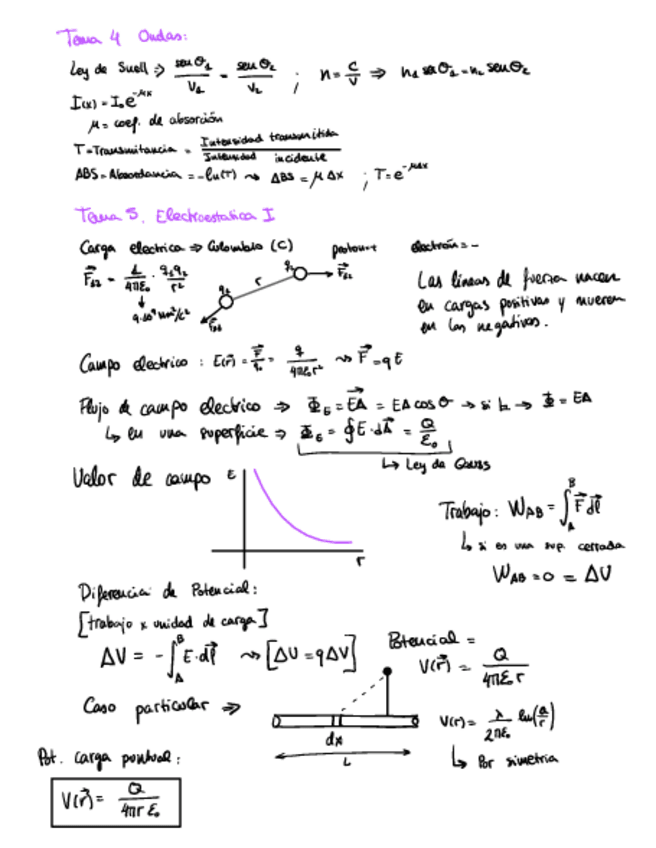 Tema 4 Ondas:
Ley de Snell ⇒ senθ₁/V₁ = senθ₂/V₂ ; n = c/v ⇒ n₁ senθ₁ = n₂ senθ₂
I(x) = I₀e^(-μx)
μ = coef. de absorción
T = Transmitancia = Intensidad transmitida / Intensidad incidente
ABS = Absordancia = -ln(T) ⇝ ABS = μΔx ; T = e^(-μΔx)
Tema 5. Electroestatica I
Carga electrica ⇒ Colombio (C) proton=+ electrón=-
F⃗₁₂ = 1/4πε₀ · q₁q₂/r²
↓
9·10⁹ Nm²/C²
q₂ r q₁ F⃗₁₂
Las líneas de fuerza nacen
en cargas positivas y mueren
en las negativas.
Campo electrico : E(r⃗) = F⃗/q₀ = q/4πε₀r² ⇝ F⃗ = qE
Flujo de campo electrico ⇒ Φ_E = EA = EA cosθ → si ⊥ → Φ = EA
↳ en una superficie ⇒ Φ_E = ∮E·dA⃗ = Q/ε₀
↳ Ley de Gauss
Valor de campo E r
Trabajo: W_AB = ∫_A^B F⃗ dl⃗
↳ si es una sup. cerrada
W_AB = 0 = ΔU
Diferencia de Potencial:
[trabajo x unidad de carga]
ΔV = -∫_A^B E·dl⃗ ⇝ [ΔU = qΔV]
Potencial =
V(r⃗) = Q/4πε₀r
Caso particular ⇒
dx
L
V(r) = λ/2πε₀ ln(a/r)
↳ Por simetria
Pot. carga puntual:
V(r⃗) = Q/4πrε₀